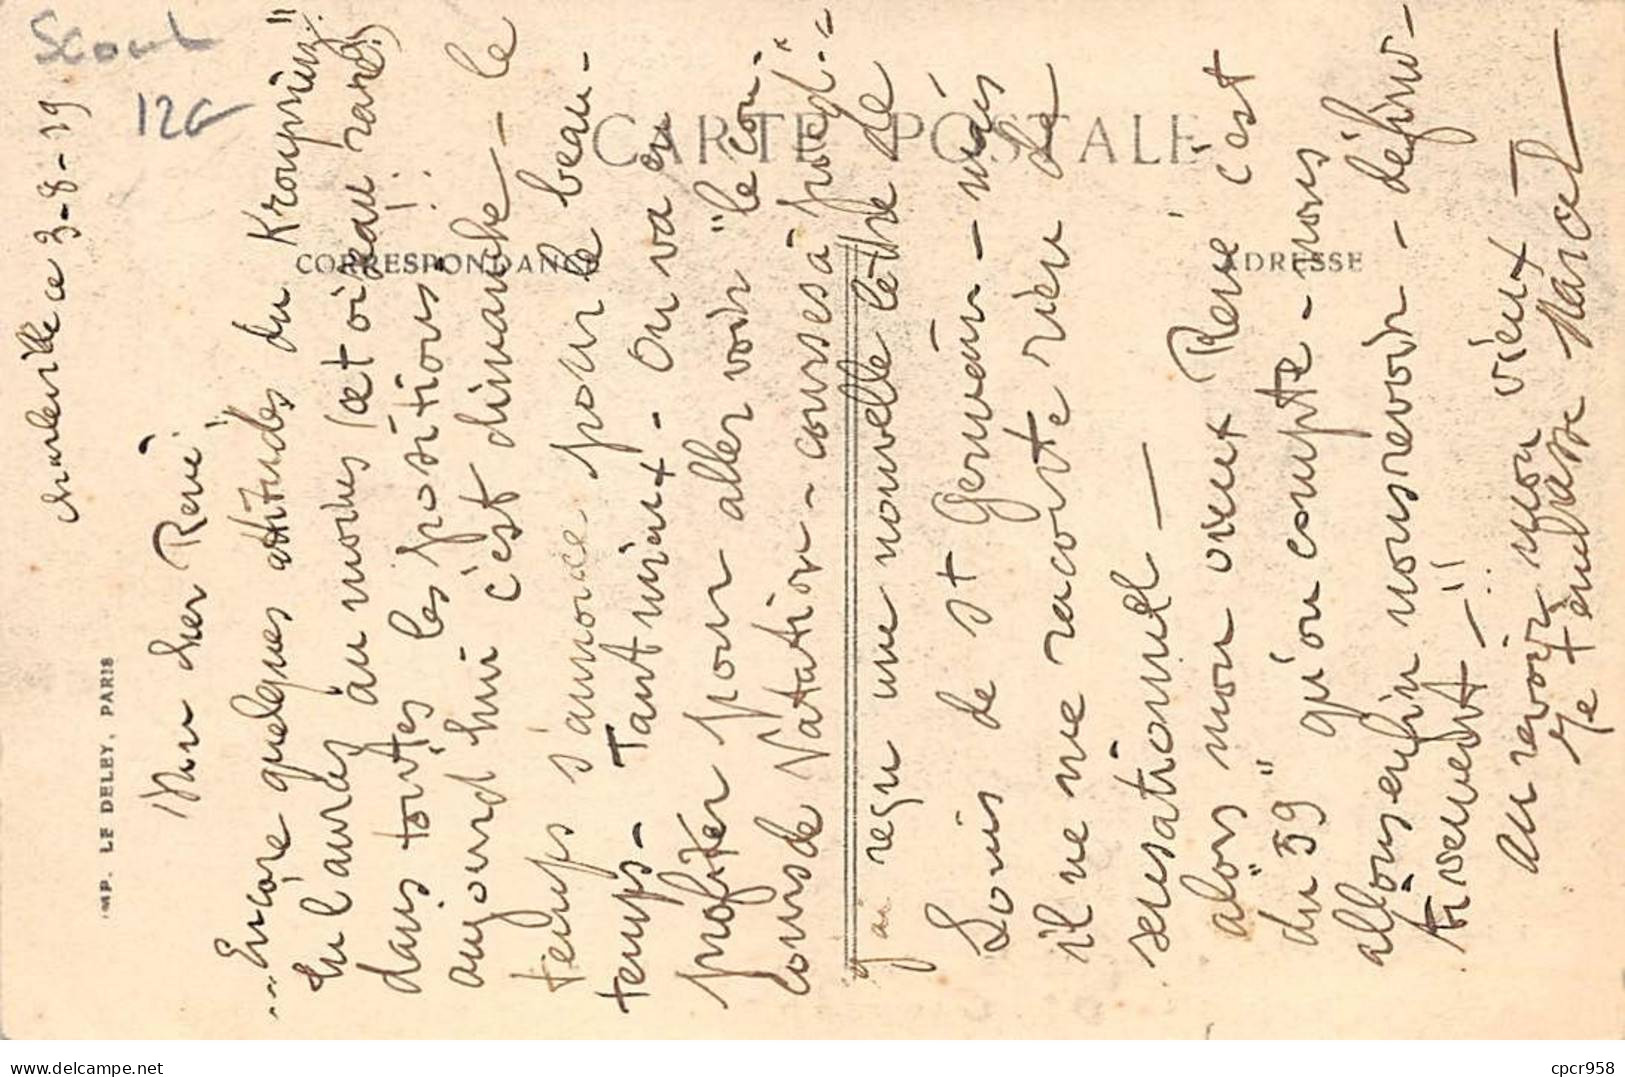 Scout
12G
CARTE POSTALE
CORRESPONDANCE
ADRESSE
IMP. LE DELEY, PARIS
Charleville ce 3-8-19
Mon cher René
... Encore quelques attitudes du Kronprinz"
Tu l'auras au moins (cet oiseau rare)
dans toutes les positions!!
aujourd'hui c'est dimanche - le
temps s'annonce pour le beau-
temps - Tant mieux - On va en
profiter pour aller voir "le con-
cours de Natation - courses à pied" =
J'ai reçu une nouvelle lettre de
Louis de St Germain - mais
il ne me raconte rien de
sensationnel -
alors mon vieux René c'est
du "59" qu'on compte - nous
allons enfin nous revoir - défini-
tivement - !!
au revoir mon vieux
Je t'embrasse Marcel
www.delcampe.net
cpcr958